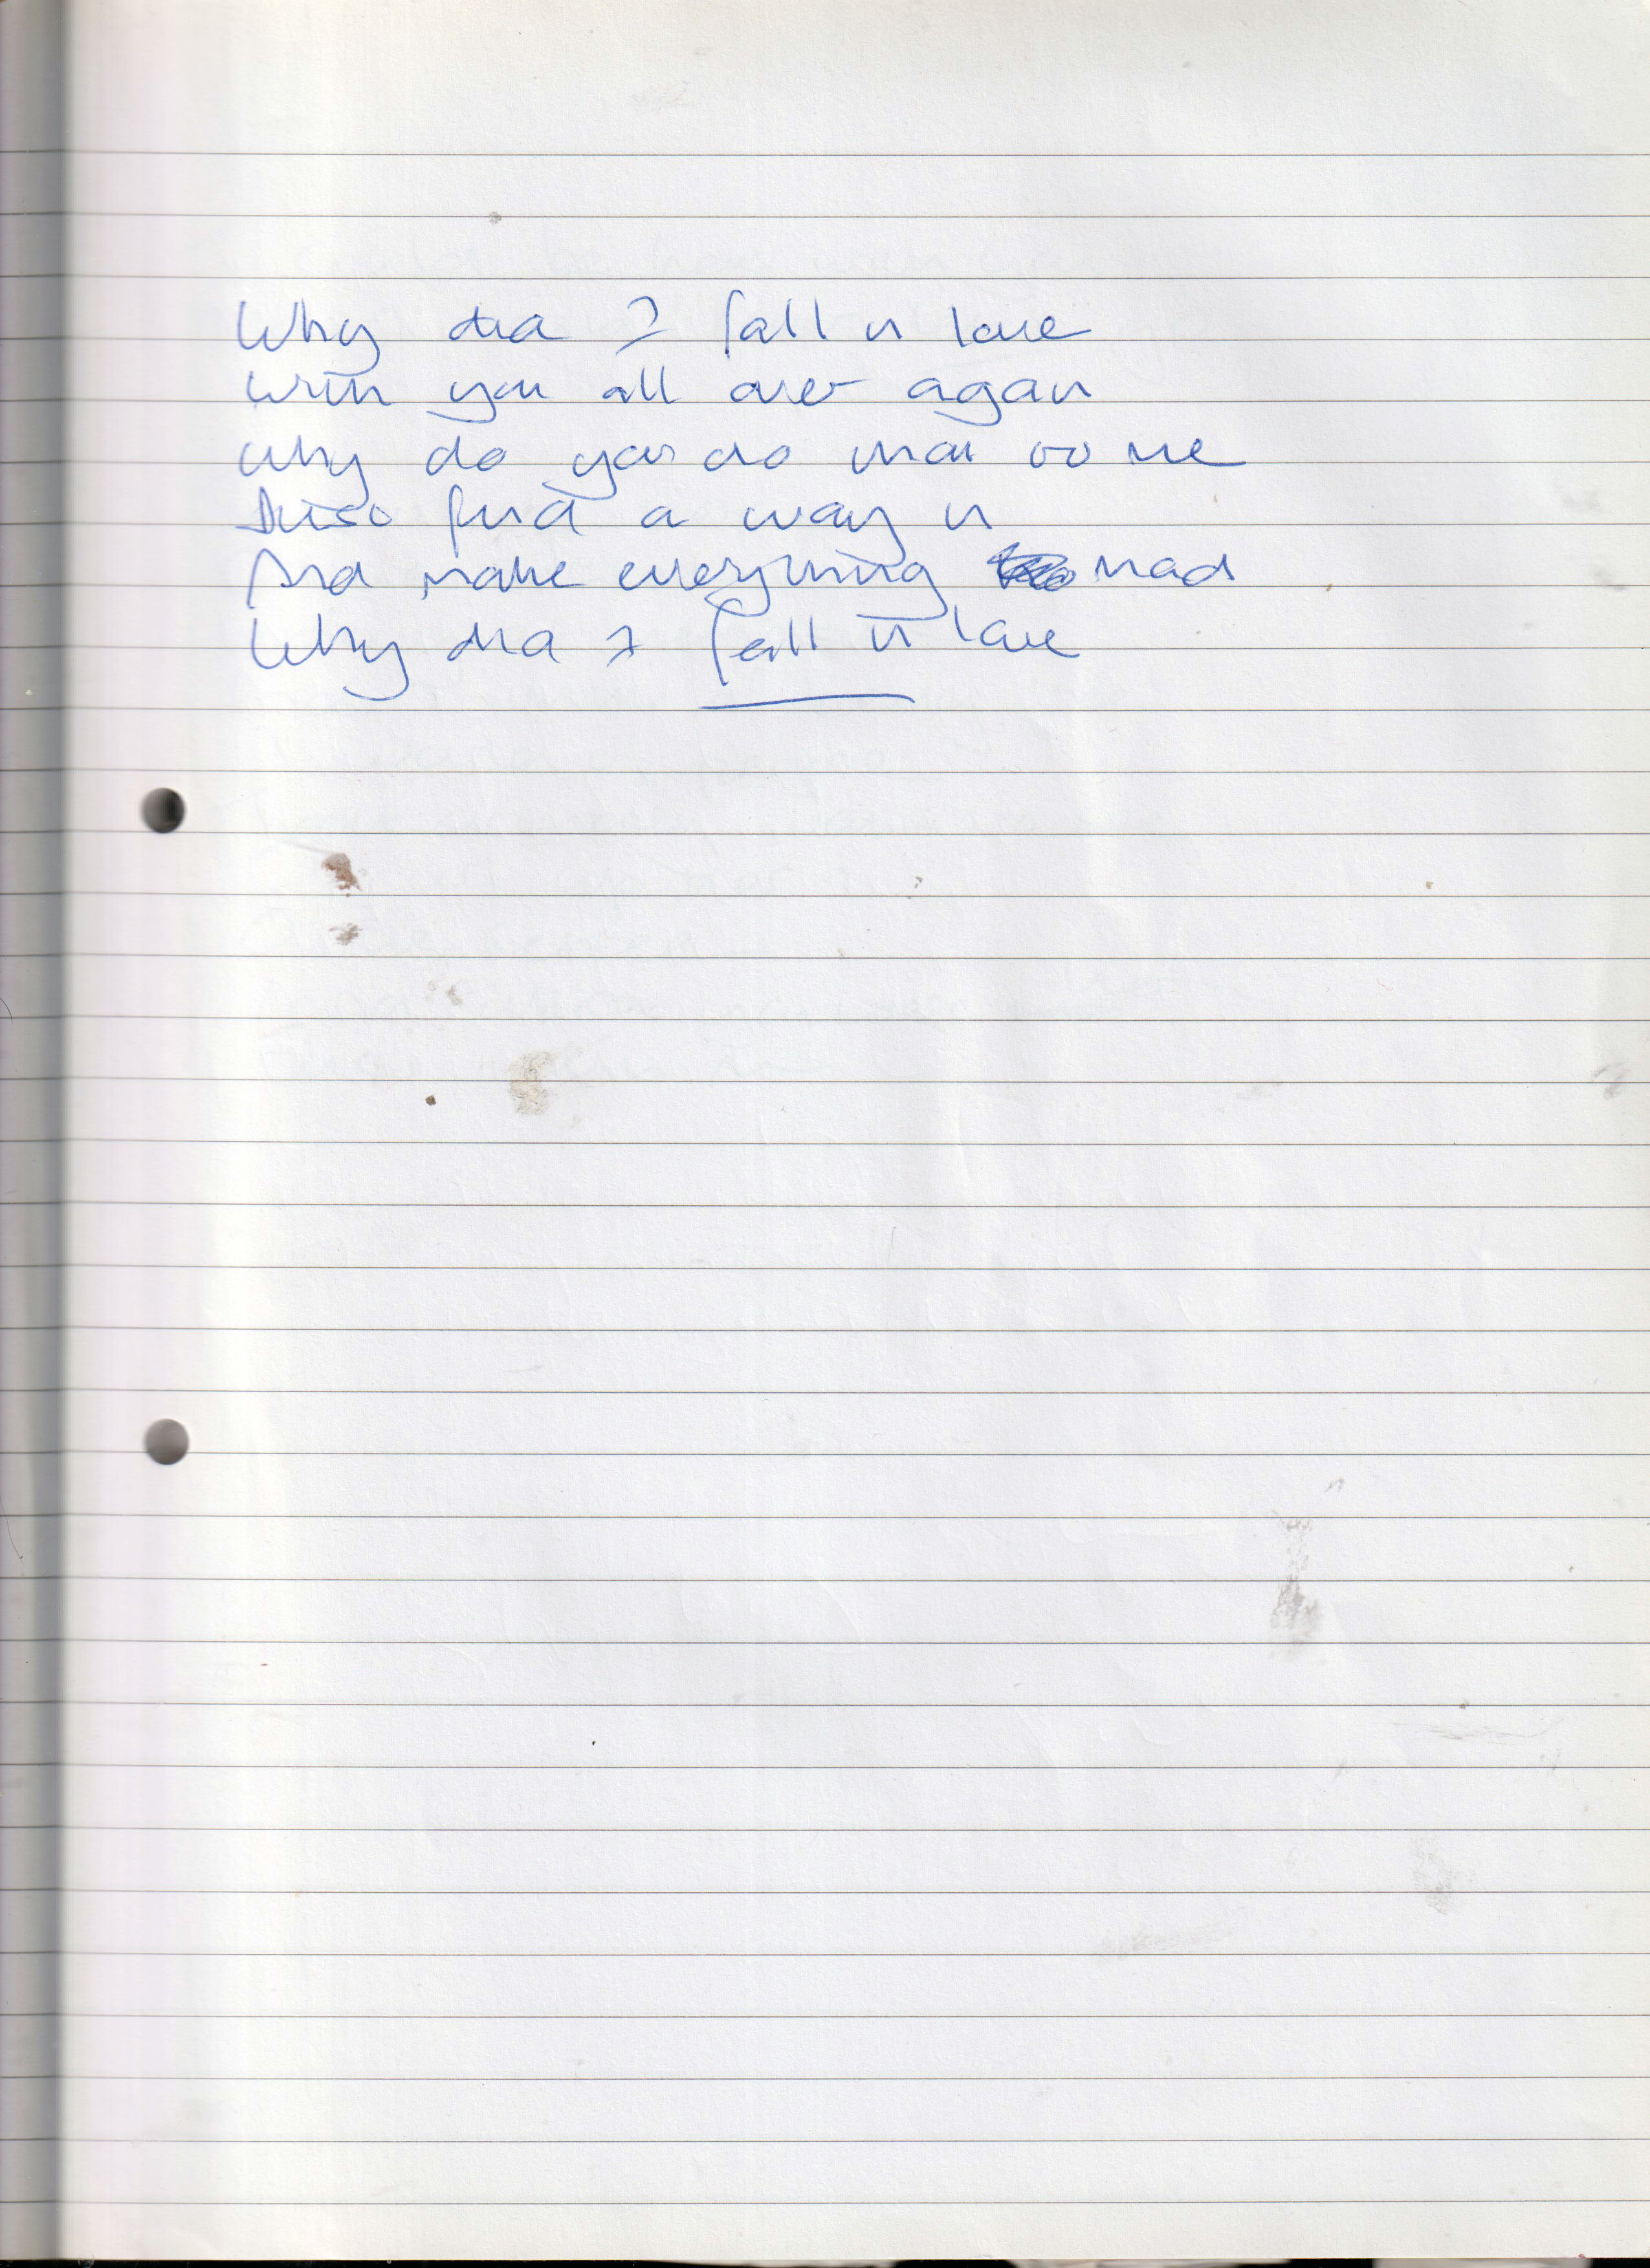 Why did I fall in love
With you all over again
Why do you do that to me
find a way in
And make everything mad
Why did I fall in love